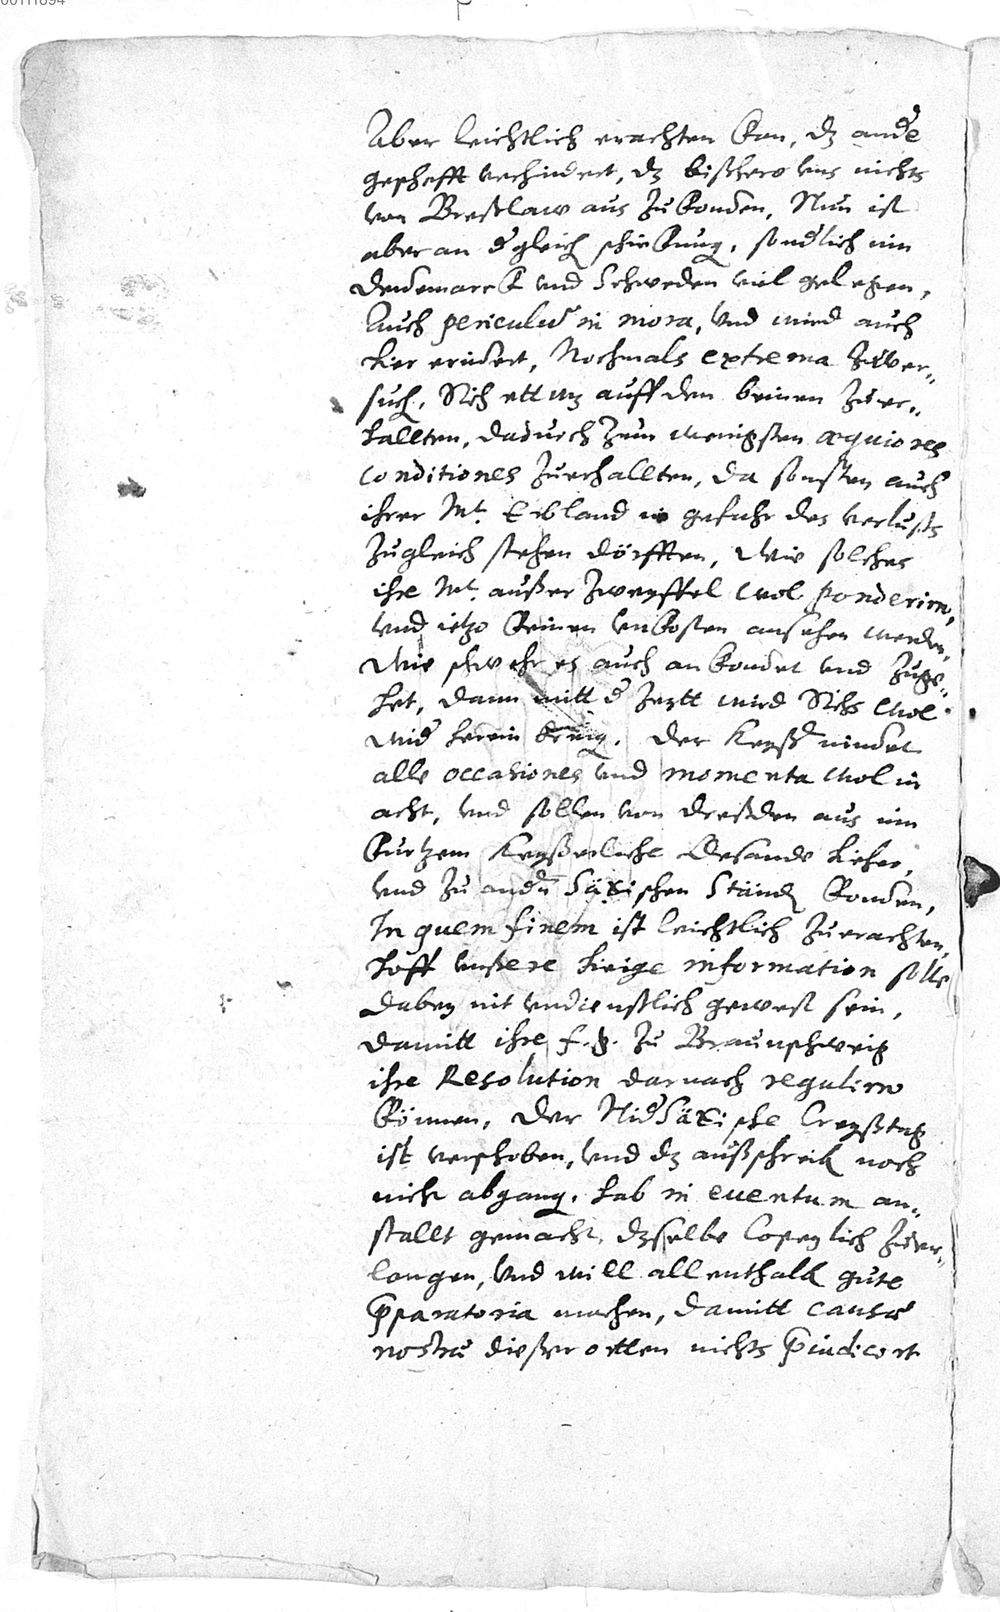 00111894
Aber leichtlich erachten kan, dz ande
geschefft verhindert, dz bißhero uns nichts
von Breßlaw aus zukomen, Nun ist
aber an dgleich schickung, sondlich inn
Denemarck und Schweden viel gelegen,
Auch periculu in mora, und wird auch
hier erindert, Nochmals extrema zuver-
such, Sich ettwz auff den beinen zuer-
hallten, dadurch zum wenigsten æquiores
conditiones zuerhallten, da sonsten auch
ihrer Mt. Erbland in gefahr des verlusts
zugleich stehen dörfften, Wie solches
ihre Mt. außer zweyffel wol ponderirn,
und ietzo keinen unkosten ansehen werden,
Wie schwehr es auch ankomet und zuge-
het, dann mitt d zeytt wird Sichs wol
wid herein bring. Der Keyß nimbt
alle occasiones und momenta wol in
acht, und sollen von Dreßden aus inn
kurtzem Keyßerliche Gesande hieher,
und zu andn Säxischen Ständ komen,
In quem finem ist leichtlich zuerachten,
hoff unßere hiesige information solle
dabey nit undienstlich geweßt sein,
damitt ihre f. g. zu Braunschweig
ihre Resolution darnach regulirn
können, Der NidSäxische Creyßtag
ist verschoben, und dz außschreib noch
nicht abgang. hab in euentum an-
stallt gemacht, dzselbe Copeylich zuer-
langen, und will allenthalb gute
præparatoria machen, damitt causæ
nostræ dießer ortten nichts præiudicirt